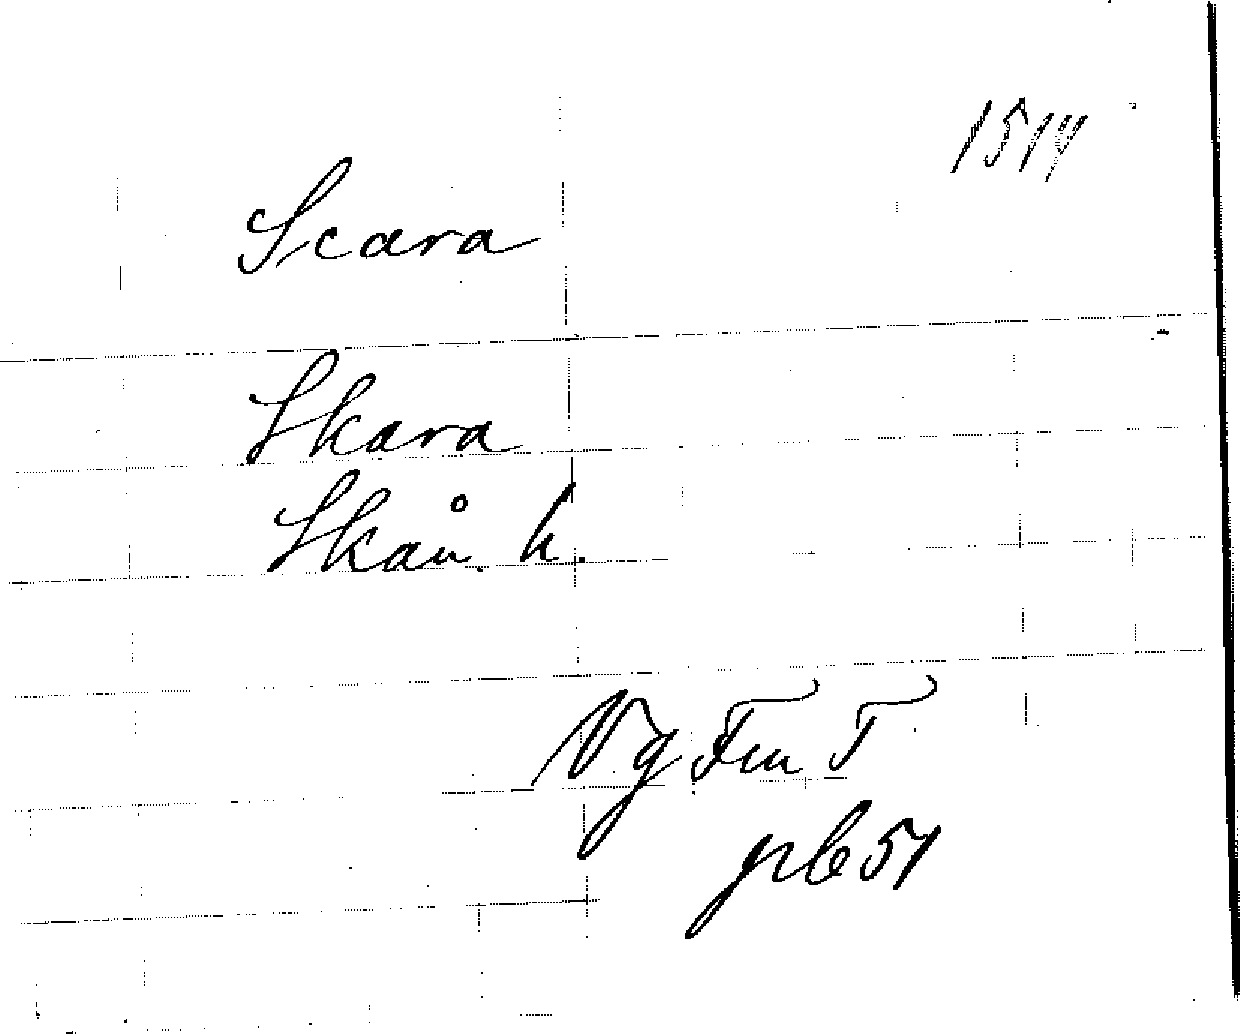 1514
Scara
Skara
Skån. h.
Vg Fm T
nb 51